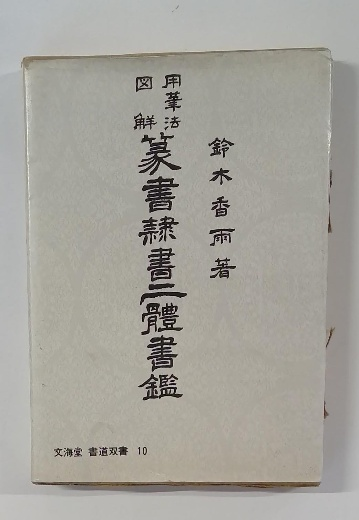 鈴木香雨著
用筆法
図解
篆書隷書二體書鑑
文海堂 書道双書 10